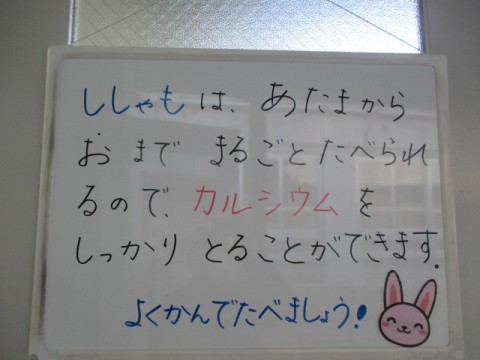 ししゃもは、あたまから
おまで まるごとたべられ
るので、カルシウムを
しっかり とることができます。
よくかんでたべましょう!